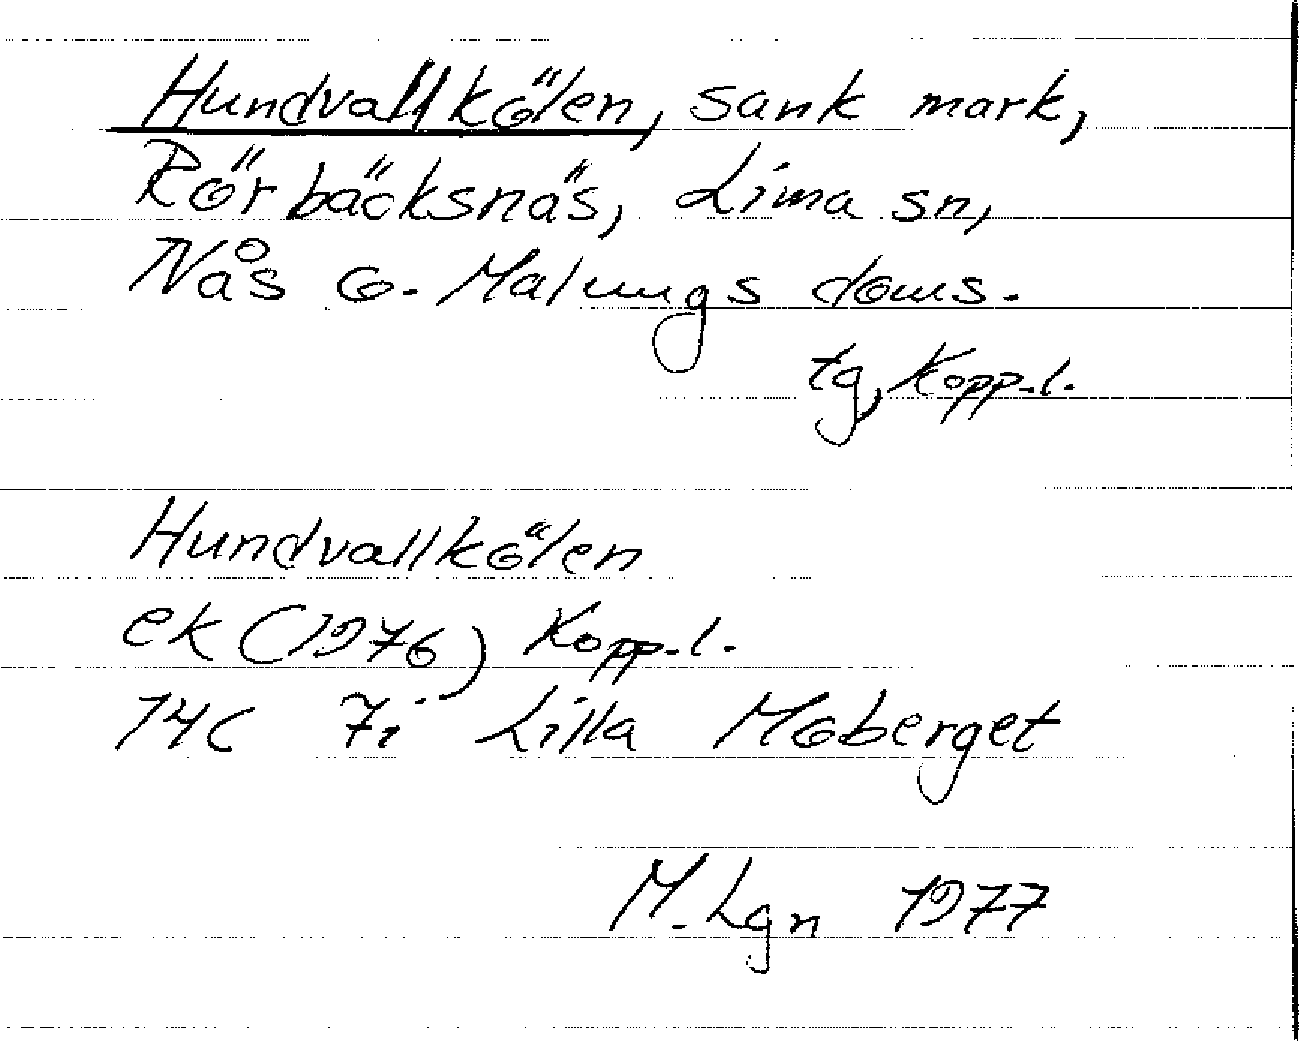 Hundvallkölen, sank mark,
Rörbäcksnäs, Lima sn,
Nås o. Malungs doms.
tg, Kopp.l.
Hundvallkölen
ek (1976) Kopp.l.
14C 7i Lilla Moberget
M. Lgn 1977